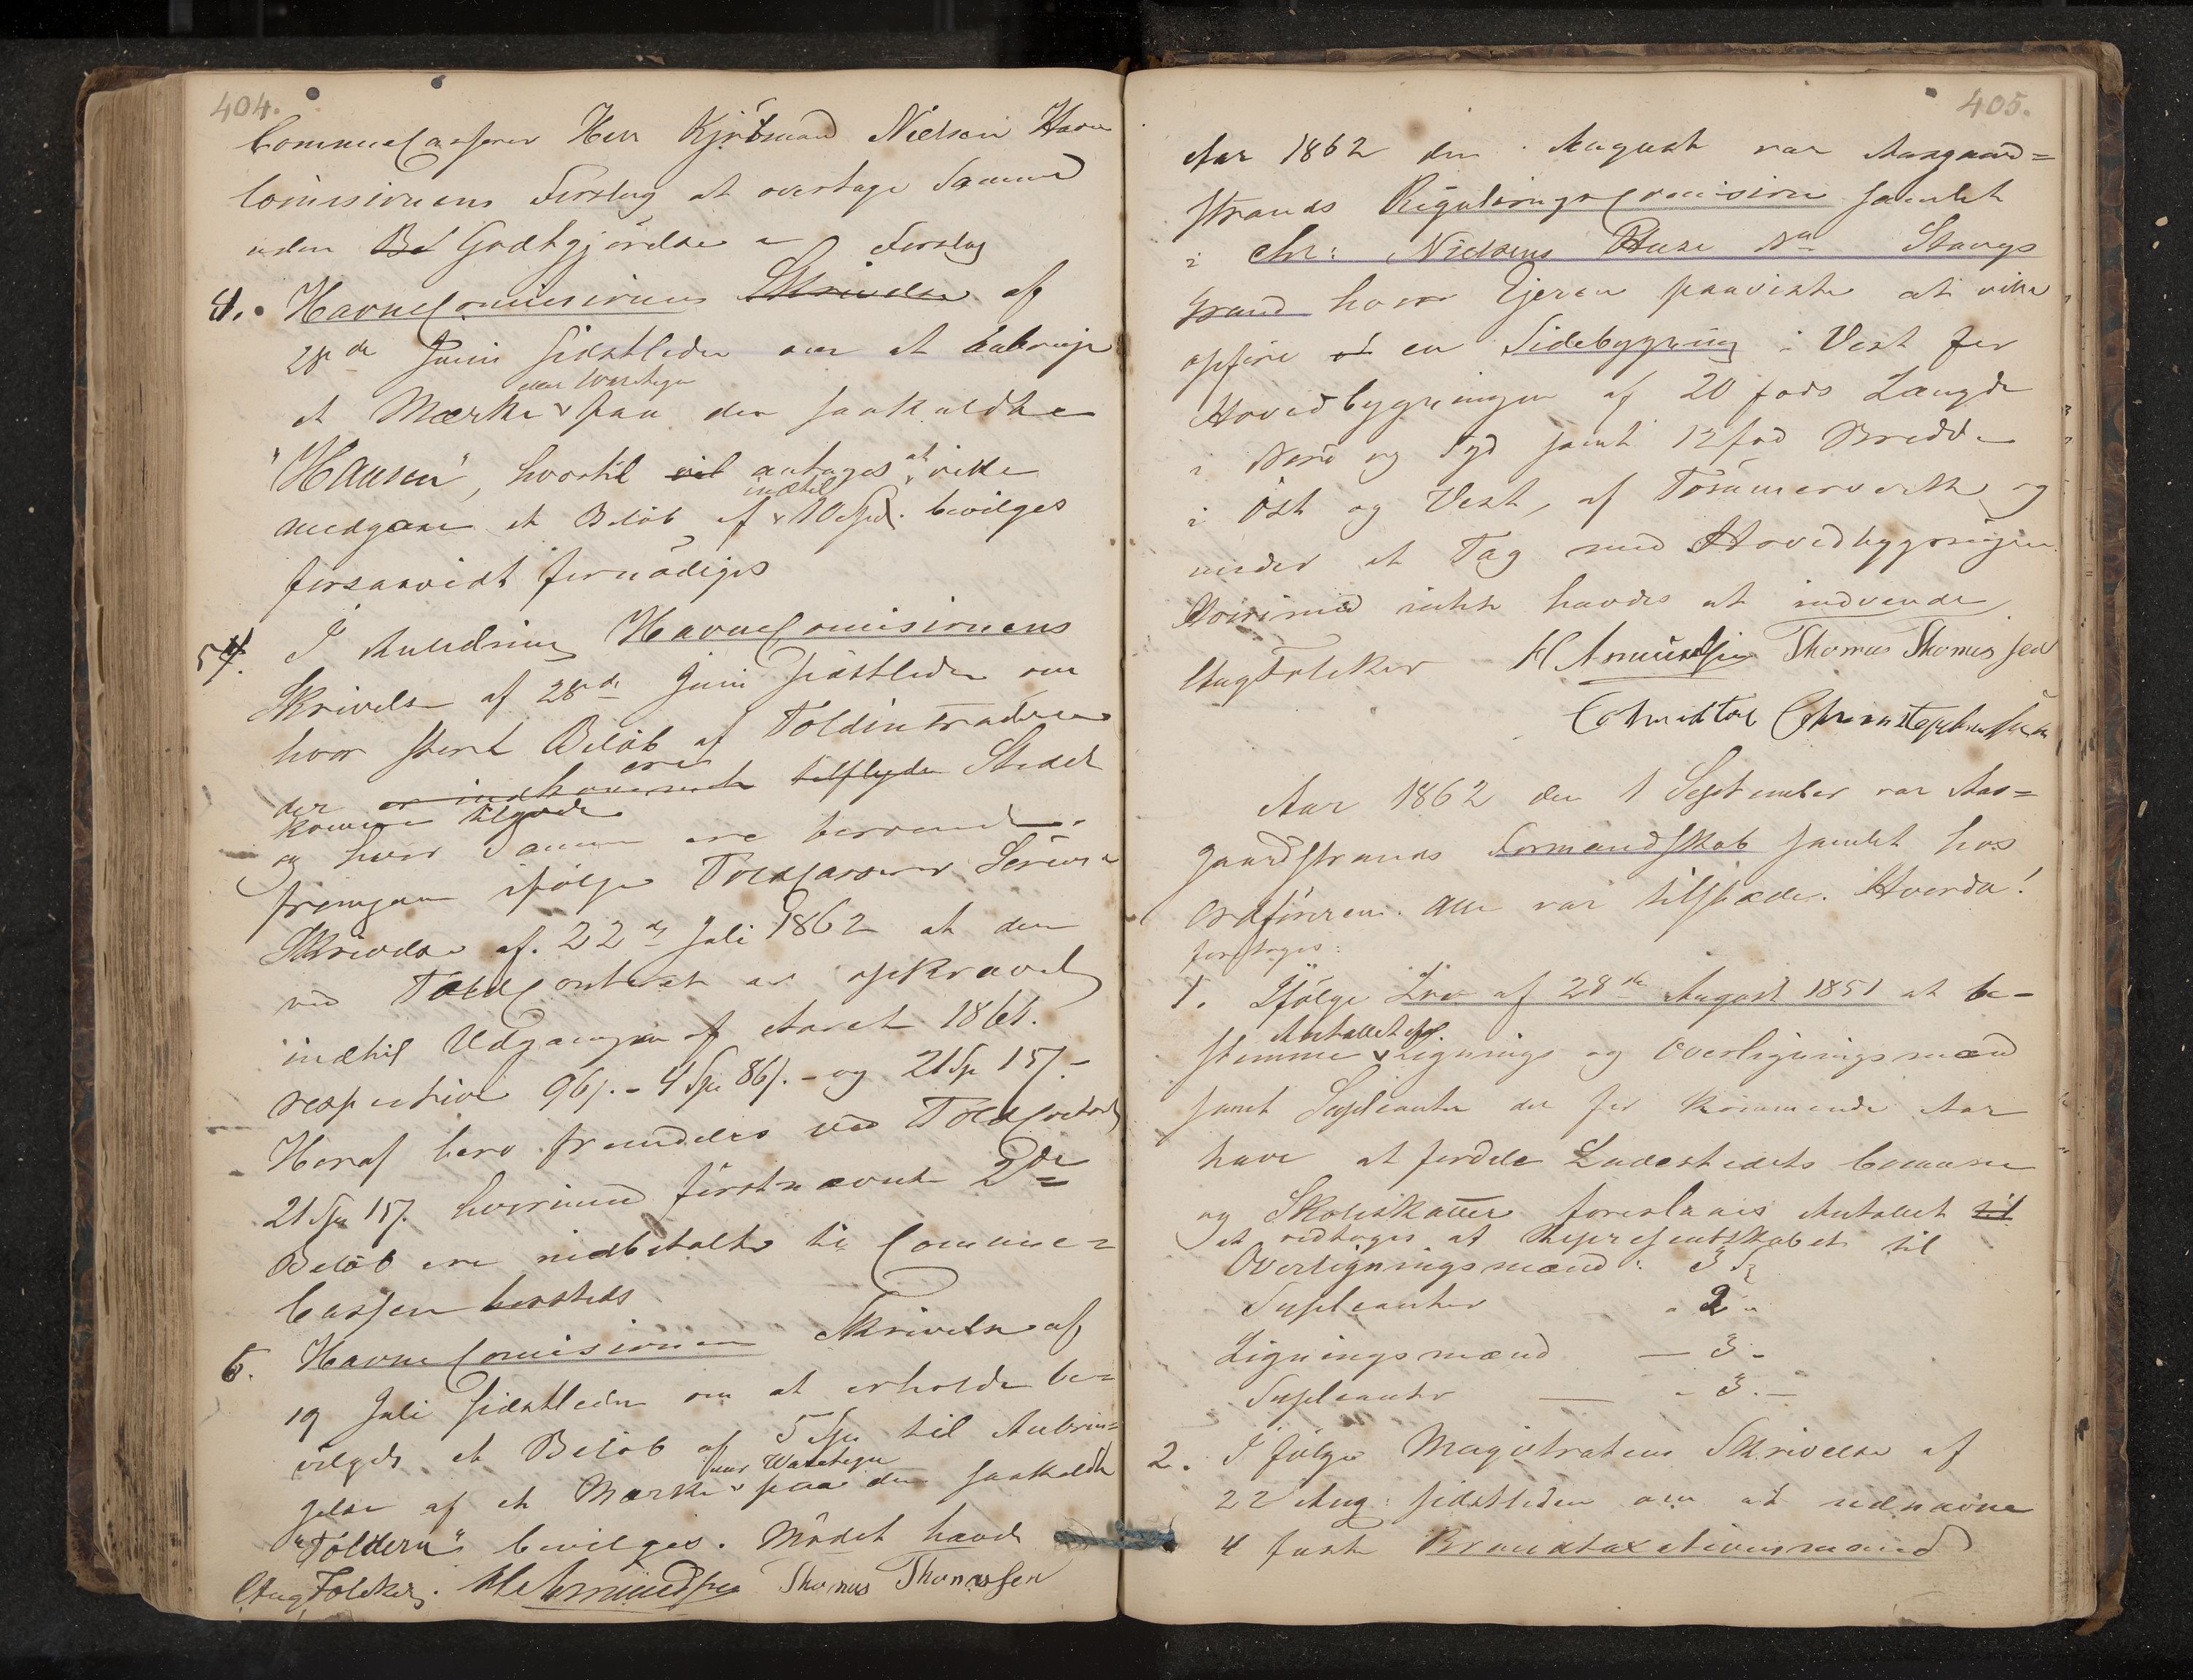 404.
Commuecasserer Herr Kjøbmand Nielsen Havne
Comissionens Forslag at overtage Samme
uden Be Godtgjörelse Forslag
4. HavneComissionens Skrivelse af
28de Juni sidstleden om at anbringe
eller Varetegn
et Mærke paa den saakaldte
"Hausen", hvortil vil antages at ville
indtil
medgaae et Belöb af 10 Spd. bevilges
forsaavidt fornödiges
5. I Anledning HavneComisionens
Skrivelse af 28de Juni sidstleden om
hvor stort Belöb af Toldintraderne
ere
der er indkommende tilflyder Stedet
komme tilgode
og hvor Samme ere beroende.
fremgaar ifölge Toldcasserer Sörens
Skrivelse af. 22de Juli 1862 at der
ved ToldContoret er opkrævet
indtil Udgangen af Aaret 1861.
respective 96 s. - 4 Spd 86 s. - og 21 Sp 15 s. -
Heraf bero fremdeles ved ToldContoret
21 Spd 15 s. hvorimod förstnævnte 2de
Belöb ere indbetalte til Commune=
Cassen hersteds
6. HavneComisionen Skrivelse af
19 Juli sidstleden om at erholde be=
vilget et Belöb af 5 Spd til Anbrin=
eller Varetegn
gelse af et Mærke paa den saakaldte
"Tolderen" bevilges. Mödet hævet
Aug Folcker. H Amundsen Thomas Thomassen
405.
Aar 1862 den August var Aasgaard=
strands ReguleringsComision samlet
i Chr: Nielsens Huse Stangs
grund hvor Ejeren paaviste at ville
opföre et en Sidebygning i Vest for
Hovedbygningen af 20 fods Længde
i Nord og Syd samt 12 fod Bredde
i Öst og Vest, af Tömmerverk og
under et Tag med Hovedbygningen
Hvorimod intet havdes at indvende
Aug Folcker H Amundsen Thomas Thomassen
Aar 1862 den 1 September var Aas=
gaardstrands Formandskab samlet hos
Ordföreren. Alle var tilstæde. Hvorda!
foretoges:
1. Ifölge Lov af 28de August 1851 at be-
Antallet af
stemme Lignings og Overligningsmænd
samt Supleanter der for kommende Aar
have at fordele Ladestedets Commune
og Skoleskatter foreslaaes Antallet til
at vedtages af Representskabet til
Overligningsmænd: 3
Supleanter - 2 "
Ligningsmænd — 3 -
Supleanter — - 3. -
2. I fölge Magistratens Skrivelse af
22 Aug: sidstleden om at udnævne
4 faste Brandtaxationsmænd